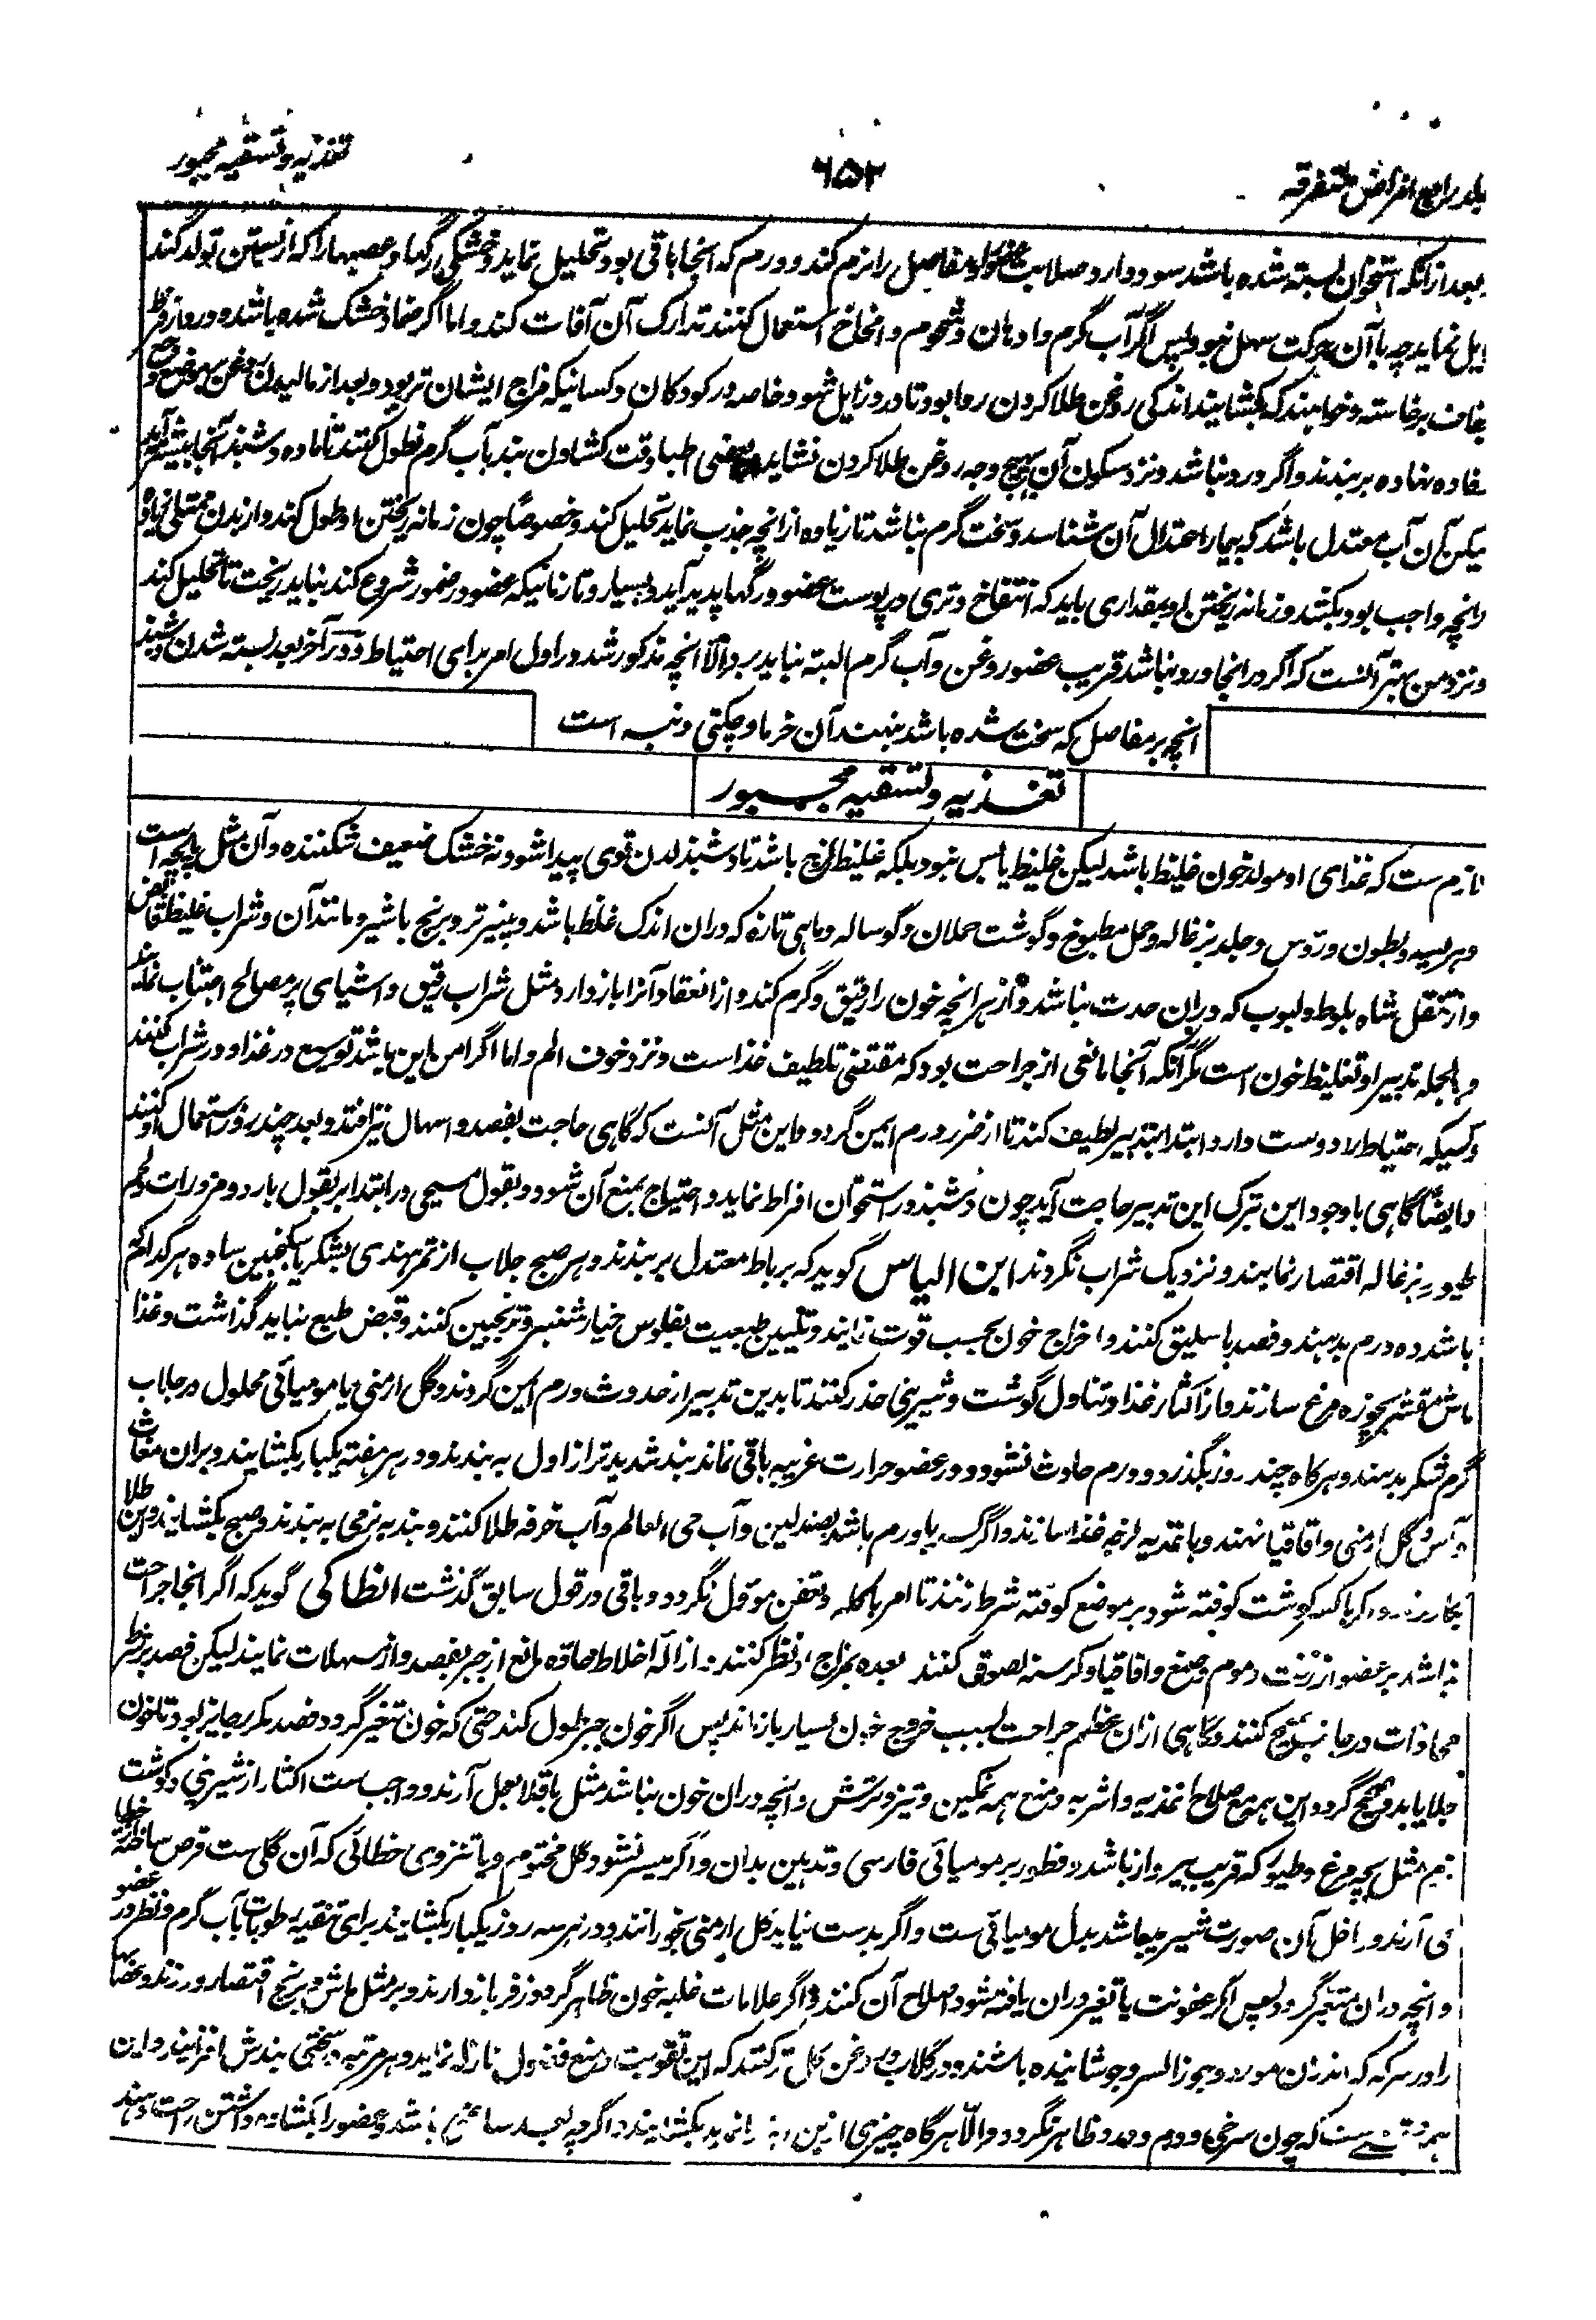 جلد رابع امراض متفرقه
۶۵۲
تغذیه و تسقیه مجبور
بعد ازانکه استخوان بسته شده باشد سود دارد و صلابت عضو و مفاصل را نرم کند و ورم که آنجا باقی بود تحلیل نماید و خشکی رگها و عصبها را که از بستن تولد کند
نماید چه با آن حرکت سهل نبود پس اگر آب گرم و ادهان و شحوم و امخاخ استعمال کنند تدارک آن آفات کند و اما اگر ضماد خشک شده باشد و درد از فرط
برخاسته و خواهند که بکشایند اندکی روغن طلا کردن روا بود تا درد زایل شود خاصه در کودکان و کسانیکه مزاج ایشان تر بود و بعد از مالیدن روغن بر موضع
نهاده بر بندند و اگر درد نباشد و نزد سکون آن بهیچ وجه روغن طلا کردن نشاید و بعضی اطبا وقت کشادن بند بآب گرم نطول کنند تا ماده دشبذ آنجا بیشتر آید
لیکن آن آب معتدل باشد که بیمار اعتدال آن بشناسد و سخت گرم نباشد تا زیاده از انچه جذب نماید تحلیل کند و خصوصاً چون زمانه ریختن او طول کند و از بدن ممتلی زیاده
زانچه واجب بود بکشد و زمانه ریختن او بمقداری باید که انتفاخ و تری در پوست عضو و رگها پدید آید و بسیار و تا زمانیکه عضو در ضمور شروع کند نباید ریخت تا تحلیل کند
و نزد من بهتر آنست که اگر در انجا درد نباشد قریب عضو روغن و آب گرم البته نباید برد الا آنچه مذکور شد در اول امر برای احتیاط و در آخر بعد بسته شدن دشبذ
انچه بر مفاصل که سخت شده باشد بنهند آن خرما و چکتی دنبه است
تغذیه و تسقیه مجبور
لازم ست که غذای او مولد خون غلیظ باشد لیکن غلیظ یابس نبود بلکه غلیظ لزج باشد تا دشبذ لدن قوی پیدا شود نه خشک ضعیف شکننده و آن مثل پاچه است
و هریسه و بطون و رؤس و جلد بزغاله و حمل مطبوخ و گوشت حملان و گوساله و ماهی تازه که دران اندک غلظ باشد و پنیر تر و برنج باشیر و مانند آن و شراب غلیظ قابض
و از تنقل شاه بلوط و لبوب که دران حدت نباشد و از هر انچه خون را رقیق و گرم کند و از انعقاد آنرا باز دارد مثل شراب رقیق و اشیای پر مصالح اجتناب نمایند
و بالجمله تدبیر او تغلیظ خون است مگر آنکه آنجا مانعی از جراحت بود که مقتضی تلطیف غذاست و نزد خوف الم و اما اگر امن باین باشد توسیع در غذا و در شراب کنند
و کسیکه احتیاط را دوست دارد ابتدا بتدبیر لطیف کند تا از ضرر ورم ایمن گردد و این مثل آنست که گاهی حاجت بفصد و اسهال نیز افتد و بعد چند روز استعمال او کنند
و ایضاً گاهی باوجود این بترک این تدبیر حاجت آید چون دشبذ در استخوان افراط نماید و احتیاج بمنع آن شود و بقول مسیحی در ابتدا بر بقول بارد و مزورات و لحم
طیور بزغاله اقتصار نمایند و نزدیک شراب نگردند ابن الیاس گوید که برباط معتدل بر بندند و هر صبح جلاب از تمر هندی بشکر یا سکنجبین ساده هر کدام که
باشد ده درم بدهند و فصد باسلیق کنند و اخراج خون بحسب قوت نمایند و تلیین طبیعت بفلوس خیارشنبر و ترنجبین کنند و قبض طبع نباید گذاشت و غذا
ماش مقشر بچوزه مرغ سازند و از اکثار غذا و تناول گوشت و شیرینی حذر کنند تا بدین تدبیر از حدوث ورم ایمن گردند و گل ارمنی یا مومیائی محلول در جلاب
گرم شکر بدهند و هر گاه چند روز بگذرد و ورم حادث نشود و در عضو حرارت غریبه باقی نماند بند شدیدتر از اول به بندند و در هر هفته یکبار بکشایند و بران مغاث
و گل ارمنی و اقاقیا نهند و باغذیه لزجه غذا سازند و اگر کسر باورم باشد بصندلین و آب حی العالم و آب خرفه طلا کنند و بند به نرمی به بندند و صبح بکشایند و این طلا
بکار برند و اگر با کسر گوشت کوفته شود بر موضع کوفته شرط زنند تا امر باکله و تعفن مؤول نگردد و باقی در قول سابق گذشت انطاکی گوید که اگر آنجا جراحت
نباشد بر عضو از زفت و موم و صمغ و اقاقیا و کرسنه لصوق کنند بعده بمزاج نظر کنند و ازاله اخلاط حاده مانع از جبر بفصد و از مسهلات نمایند لیکن فصد بر نظر
محاذات در جانب صحیح کنند و گاهی ازان عظم جراحت بسبب خروج خون بسیار باز ماند پس اگر خون جبر طول کند حتی که خون متغیر گردد فصد مکرر جایز بود تا خون
جلا یابد و صحیح گردد و این همه مع صلاح اغذیه و اشربه و منع همه نمکین و تیز و ترش و انچه دران خون نباشد مثل باقلا بعمل آرند و واجب ست اکثار از شیرینی و گوشت
مثل بچه مرغ و طیور که قریب بپرواز باشد و فطور بر مومیائی فارسی و تدهین بدان و اگر میسر نشود گل مختوم و یا تنزوی خطائی که آن گلی ست قرص ساخته از خطا
می آرند و داخل آن صورت شیر میباشد بدل مومیائی ست و اگر بدست نیاید گل ارمنی بخورانند و در هر سه روز یکبار بکشایند برای تنقیه رطوبات بآب گرم و نظر در عضو
و انچه دران متغیر گردد پس اگر عفونت یا تغیر دران یافته شود اصلاح آن کنند و اگر علامات غلبه خون ظاهر گردد از فربا ز دارند و بر مثل ماش و برنج اقتصار ورزند
را در سرکه که اندران مورد و جوز السرو جوشانیده باشند و در گلاب و روغن گل تر کنند که این تقویت و منع فضول نازله نماید و هر مرتبه در سختی بندش افزایند و این
ست که چون سرخی و ورم و درد ظاهر نگردد و الا هر گاه چیزی ازین بکشایند اگرچه بعد باشد و عضو را بکشاده داشتن راحت دهند